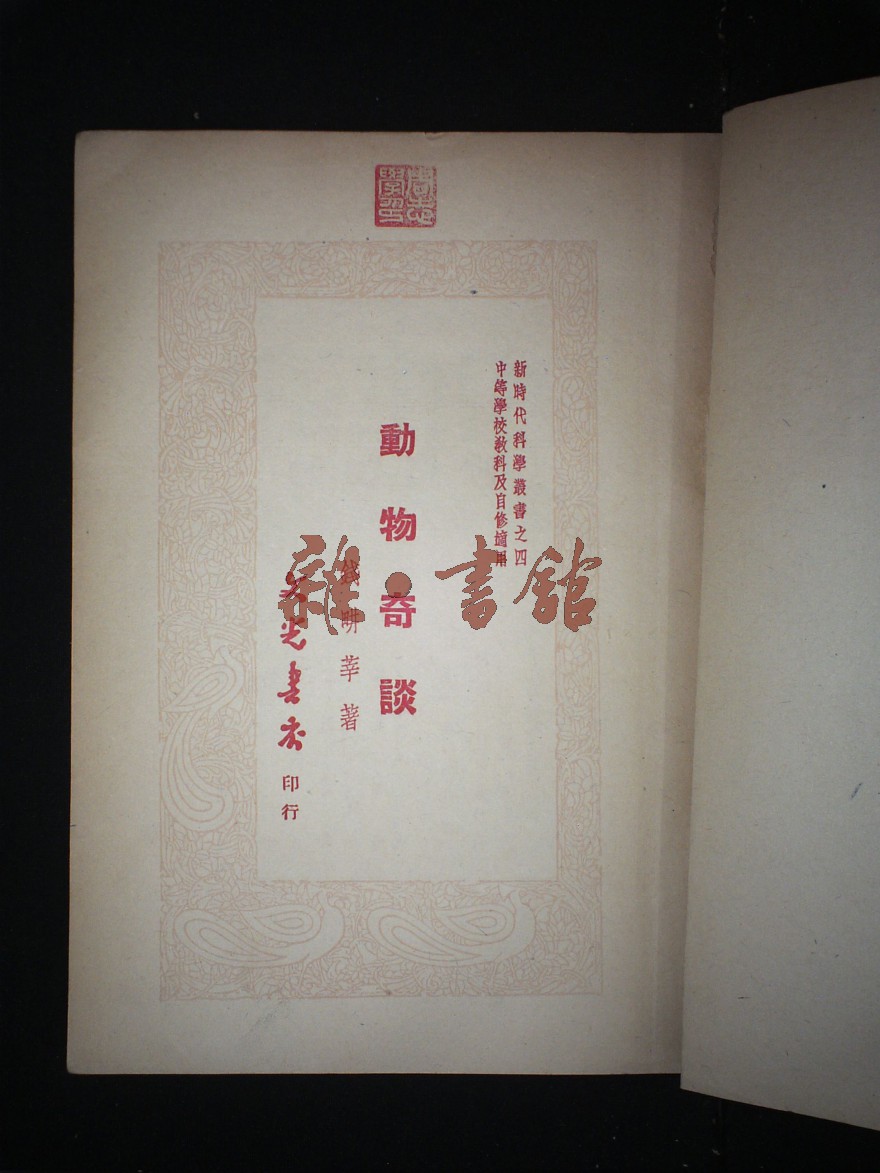 新時代科學叢書之四
中等學校教科及自修適用
動物奇談
錢畊莘著
文光書局
印行
雜·書館